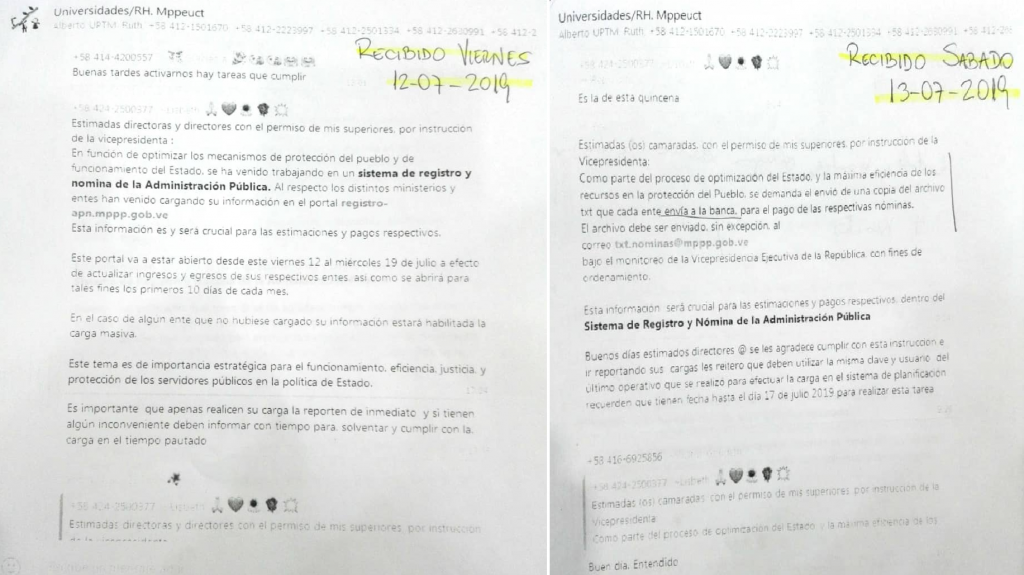 Universidades/RH. Mppeuct
Alberto UPTM, Ruth, +58 412-1501670, +58 412-2223997, +58 412-2501334, +58 412-2630991, +58 412-2
RECIBIDO VIERNES
12-07-2019
+58 414-4200557
Buenas tardes activarnos hay tareas que cumplir
+58 424-2500377
Estimadas directoras y directores con el permiso de mis superiores, por instrucción
de la vicepresidenta :
En función de optimizar los mecanismos de protección del pueblo y de
funcionamiento del Estado, se ha venido trabajando en un sistema de registro y
nomina de la Administración Pública. Al respecto los distintos ministerios y
entes han venido cargando su información en el portal registro-
apn.mppp.gob.ve
Esta información es y será crucial para las estimaciones y pagos respectivos.
Este portal va a estar abierto desde este viernes 12 al miércoles 19 de julio a efecto
de actualizar ingresos y egresos de sus respectivos entes, así como se abrirá para
tales fines los primeros 10 días de cada mes.
En el caso de algún ente que no hubiese cargado su información estará habilitada la
carga masiva.
Este tema es de importancia estratégica para el funcionamiento, eficiencia, justicia, y
protección de los servidores públicos en la política de Estado.
Es importante que apenas realicen su carga la reporten de inmediato y si tienen
algún inconveniente deben informar con tiempo para solventar y cumplir con la
carga en el tiempo pautado
+58 424-2500377
Estimadas directoras y directores con el permiso de mis superiores, por instrucción
de la vicepresidenta
Universidades/RH. Mppeuct
Alberto UPTM, Ruth, +58 412-1501670, +58 412-2223997, +58 412-2501334, +58 412-2630991, +58 412-26
RECIBIDO SABADO
13-07-2019
+58 424-2500377
Es la de esta quincena
Estimadas (os) camaradas, con el permiso de mis superiores, por instrucción de la
Vicepresidenta:
Como parte del proceso de optimización del Estado, y la máxima eficiencia de los
recursos en la protección del Pueblo, se demanda el envío de una copia del archivo
txt que cada ente envía a la banca, para el pago de las respectivas nóminas.
El archivo debe ser enviado, sin excepción, al
correo txt.nominas@mppp.gob.ve
bajo el monitoreo de la Vicepresidencia Ejecutiva de la República, con fines de
ordenamiento.
Esta información será crucial para las estimaciones y pagos respectivos, dentro del
Sistema de Registro y Nómina de la Administración Pública
Buenos días estimados directores @ se les agradece cumplir con esta instrucción e
ir reportando sus cargas les reitero que deben utilizar la misma clave y usuario del
último operativo que se realizó para efectuar la carga en el sistema de planificación
recuerden que tienen fecha hasta el día 17 de julio 2019 para realizar esta tarea
+58 416-6925856
+58 424-2500377
Estimadas (os) camaradas, con el permiso de mis superiores, por instrucción de la
Vicepresidenta
Como parte del proceso de optimización del Estado, y la máxima eficiencia de los
Buen dia, Entendido